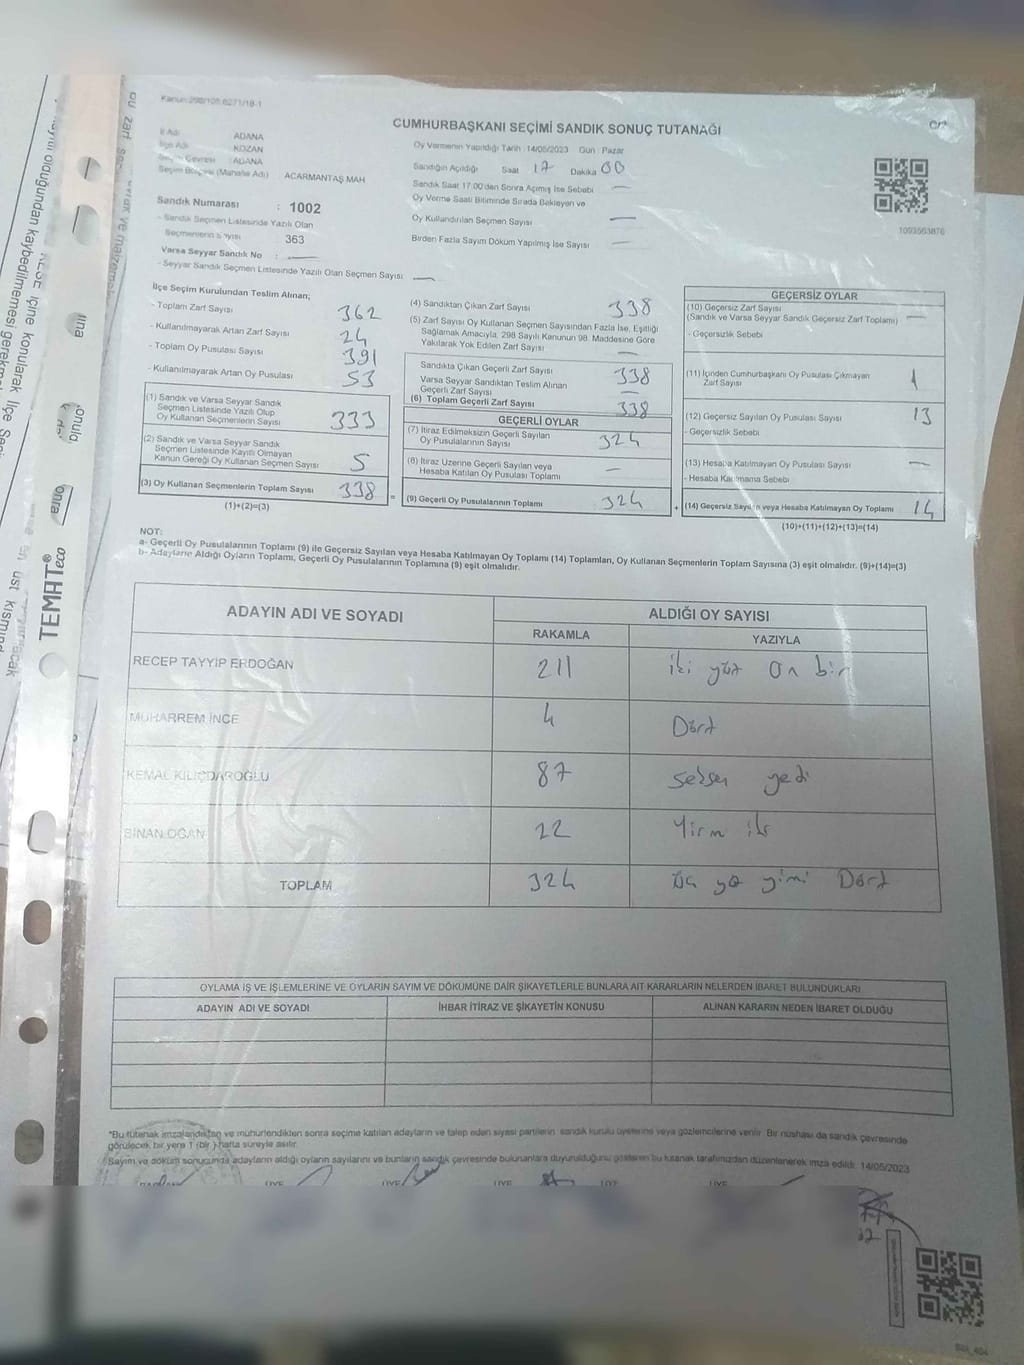 Kanun:298/105.6271/18-1
CUMHURBAŞKANI SEÇİMİ SANDIK SONUÇ TUTANAĞI
İl Adı ADANA
İlçe Adı KOZAN
Seçim Çevresi : ADANA
Seçim Bölgesi (Mahalle Adı) ACARMANTAŞ MAH
Sandık Numarası : 1002
- Sandık Seçmen Listesinde Yazılı Olan
Seçmenlerin Sayısı 363
Varsa Seyyar Sandık No :
- Seyyar Sandık Seçmen Listesinde Yazılı Olan Seçmen Sayısı:
Oy Vermenin Yapıldığı Tarih : 14/05/2023 Gün : Pazar
Sandığın Açıldığı Saat 17 Dakika 00
Sandık Saat 17:00'den Sonra Açımış İse Sebebi —
Oy Verme Saati Bitiminde Sırada Bekleyen ve
Oy Kullandırılan Seçmen Sayısı —
Birden Fazla Sayım Döküm Yapılmış İse Sayısı —
1093563876
İlçe Seçim Kurulundan Teslim Alınan;
- Toplam Zarf Sayısı 362
- Kullanılmayarak Artan Zarf Sayısı 24
- Toplam Oy Pusulası Sayısı 391
- Kullanılmayarak Artan Oy Pusulası 53
(1) Sandık ve Varsa Seyyar Sandık
Seçmen Listesinde Yazılı Olup
Oy Kullanan Seçmenlerin Sayısı 333
(2) Sandık ve Varsa Seyyar Sandık
Seçmen Listesinde Kayıtlı Olmayan
Kanun Gereği Oy Kullanan Seçmen Sayısı 5
(3) Oy Kullanan Seçmenlerin Toplam Sayısı 338 =
(1)+(2)=(3)
(4) Sandıktan Çıkan Zarf Sayısı 338
(5) Zarf Sayısı Oy Kullanan Seçmen Sayısından Fazla İse, Eşitliği
Sağlamak Amacıyla, 298 Sayılı Kanunun 98. Maddesine Göre
Yakılarak Yok Edilen Zarf Sayısı —
Sandıkta Çıkan Geçerli Zarf Sayısı 338
Varsa Seyyar Sandıktan Teslim Alınan
Geçerli Zarf Sayısı —
(6) Toplam Geçerli Zarf Sayısı 338
GEÇERLİ OYLAR
(7) İtiraz Edilmeksizin Geçerli Sayılan
Oy Pusulalarının Sayısı 324
(8) İtiraz Üzerine Geçerli Sayılan veya
Hesaba Katılan Oy Pusulası Toplamı —
(9) Geçerli Oy Pusulalarının Toplamı 324 +
GEÇERSİZ OYLAR
(10) Geçersiz Zarf Sayısı
(Sandık ve Varsa Seyyar Sandık Geçersiz Zarf Toplamı) —
- Geçersizlik Sebebi
(11) İçinden Cumhurbaşkanı Oy Pusulası Çıkmayan
Zarf Sayısı 1
(12) Geçersiz Sayılan Oy Pusulası Sayısı 13
- Geçersizlik Sebebi
(13) Hesaba Katılmayan Oy Pusulası Sayısı —
- Hesaba Katılmama Sebebi
(14) Geçersiz Sayılan veya Hesaba Katılmayan Oy Toplamı 14
(10)+(11)+(12)+(13)=(14)
NOT:
a- Geçerli Oy Pusulalarının Toplamı (9) ile Geçersiz Sayılan veya Hesaba Katılmayan Oy Toplamı (14) Toplamları, Oy Kullanan Seçmenlerin Toplam Sayısına (3) eşit olmalıdır. (9)+(14)=(3)
b- Adayların Aldığı Oyların Toplamı, Geçerli Oy Pusulalarının Toplamına (9) eşit olmalıdır.
ADAYIN ADI VE SOYADI ALDIĞI OY SAYISI
RAKAMLA YAZIYLA
RECEP TAYYİP ERDOĞAN 211 iki yüz on bir
MUHARREM İNCE 4 Dört
KEMAL KILIÇDAROĞLU 87 seksen yedi
SİNAN OĞAN 22 Yirm iki
TOPLAM 324 üç yüz yirmi Dört
OYLAMA İŞ VE İŞLEMLERİNE VE OYLARIN SAYIM VE DÖKÜMÜNE DAİR ŞİKAYETLERLE BUNLARA AİT KARARLARIN NELERDEN İBARET BULUNDUKLARI
ADAYIN ADI VE SOYADI İHBAR İTİRAZ VE ŞİKAYETİN KONUSU ALINAN KARARIN NEDEN İBARET OLDUĞU
*Bu tutanak imzalandıktan ve mühürlendikten sonra seçime katılan adayların ve talep eden siyasi partilerin sandık kurulu üyelerine veya gözlemcilerine verilir. Bir nüshası da sandık çevresinde
görülecek bir yere 1 (bir) hafta süreyle asılır.
Sayım ve döküm sonucunda adayların aldığı oyların sayılarını ve bunların sandık çevresinde bulunanlara duyurulduğunu gösteren bu tutanak tarafımızdan düzenlenerek imza edildi. 14/05/2023
ÜYE ÜYE ÜYE ÜYE ÜYE
TEMAT®eco